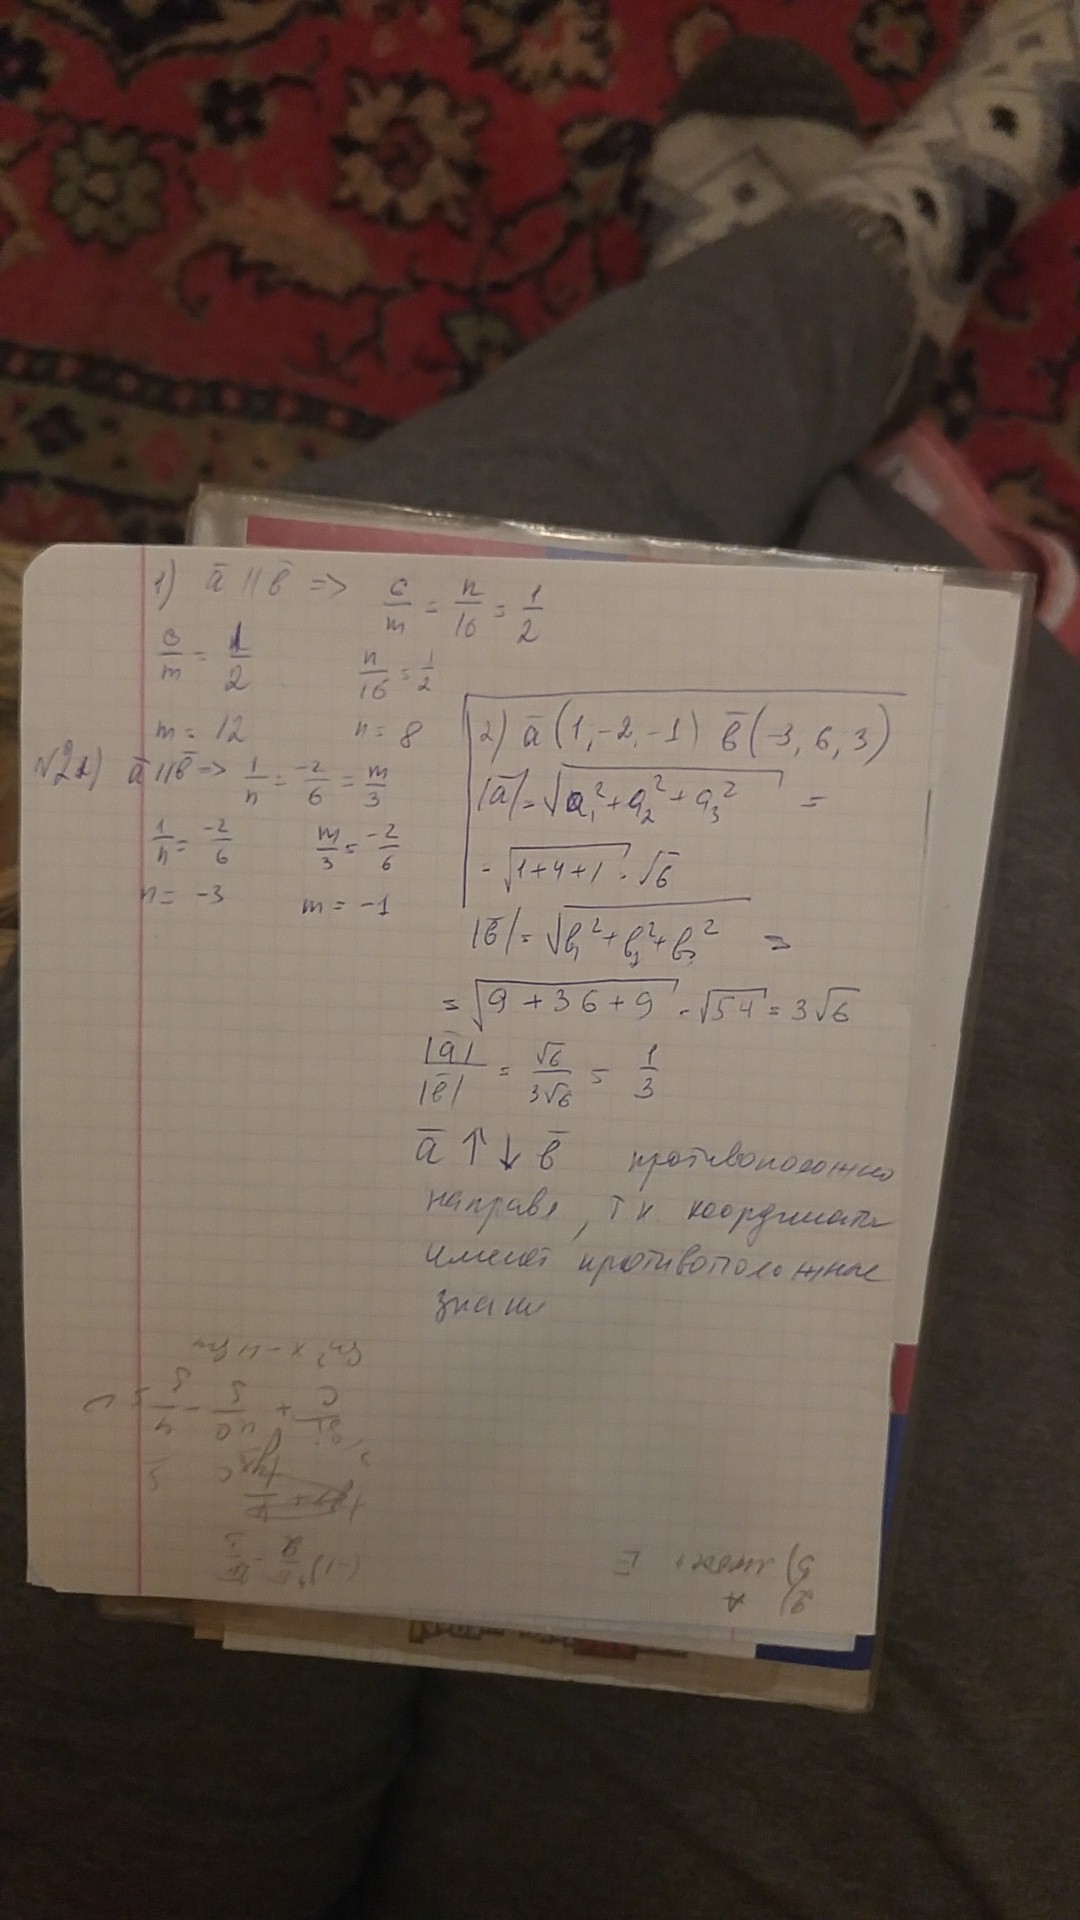 1) a̅ || b̅ => 6/m = n/16 = 1/2
6/m = 1/2    n/16 = 1/2
m = 12    n = 8
№2 1) a̅ || b̅ => 1/n = -2/6 = m/3
1/n = -2/6    m/3 = -2/6
n = -3    m = -1
2) a̅ (1, -2, -1) b̅ (-3, 6, 3)
|a̅| = √(a₁² + a₂² + a₃²) =
= √(1+4+1) = √6
|b̅| = √(b₁² + b₂² + b₃²) =
= √(9 + 36 + 9) = √54 = 3√6
|a̅|/|b̅| = √6/3√6 = 1/3
a̅ ↑↓ b̅ противоположно
направл, т к координаты
имеют противоположные
знаки
2) A